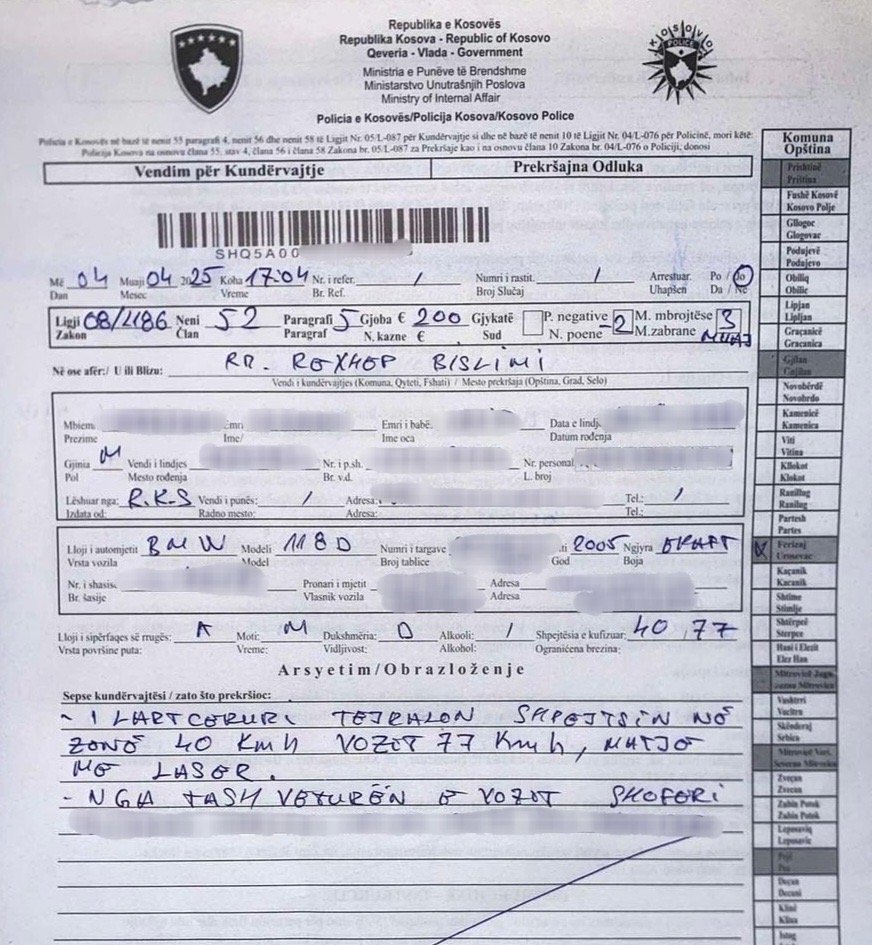 Republika e Kosovës
Republika Kosova - Republic of Kosovo
Qeveria - Vlada - Government
Ministria e Punëve të Brendshme
Ministarstvo Unutrašnjih Poslova
Ministry of Internal Affair
KOSOVO POLICE
Policia e Kosovës/Policija Kosova/Kosovo Police
Policia e Kosovës në bazë të nenit 55 paragrafi 4, nenit 56 dhe nenit 58 të Ligjit Nr. 05/L-087 për Kundërvajtje si dhe në bazë të nenit 10 të Ligjit Nr. 04/L-076 për Policinë, mori këtë:
Policija Kosova na osnovu člana 55, stav 4, člana 56 i člana 58 Zakona br. 05/L-087 za Prekršaje kao i na osnovu člana 10 Zakona br. 04/L-076 o Policiji, donosi
Vendim për Kundërvajtje Prekršajna Odluka
SHQ5A00
Më 04 Muaji 04 2025 Koha 17:04 Nr. i refer. / Numri i rastit. / Arrestuar. Po / Jo
Dan Mesec Vreme Br. Ref. Broj Slučaj Uhapšen Da / Ne
Ligji 08/L186 Neni 52 Paragrafi 5 Gjoba € 200 Gjykatë P. negative -2 M. mbrojtëse 3
Zakon Član Paragraf N. kazne € Sud N. poene M.zabrane MUAJ
Në ose afër:/ U ili Blizu: RR. REXHEP BISLIMI
Vendi i kundërvajtjes (Komuna, Qyteti, Fshati) / Mesto prekršaja (Opština, Grad, Selo)
Mbiem Emri Emri i babë. Data e lindj.
Prezime Ime/ Ime oca Datum rođenja
Gjinia M Vendi i lindjes Nr. i p.sh. Nr. personal
Pol Mesto rođenja Br. v.d. L. broj
Lëshuar nga: R.K.S Vendi i punës: / Adresa: Tel.: /
Izdata od: Radno mesto: Adresa: Tel.:
Lloji i automjetit BMW Modeli 118D Numri i targave ti 2005 Ngjyra
Vrsta vozila Model Broj tablice God Boja
Nr. i shasisë Pronari i mjetit Adresa
Br. šasije Vlasnik vozila Adresa
Lloji i sipërfaqes së rrugës: A Moti: M Dukshmëria: D Alkooli: / Shpejtësia e kufizuar: 40,77
Vrsta površine puta: Vreme: Vidljivost: Alkohol: Ograničena brezina:
Arsyetim/Obrazloženje
Sepse kundërvajtësi / zato što prekršioc:
- I LARTCEKURI TEJKALON SHPEJTSIN NË
ZONË 40 KMH VOZIT 77 KMH, MATJE
ME LASER.
- NGA TASH VETURËN E VOZIT SHOFERI
Komuna
Opština
Prishtinë
Priština
Fushë Kosovë
Kosovo Polje
Gllogoc
Glogovac
Podujevë
Podujevo
Obiliq
Obilic
Lipjan
Lipljan
Graçanicë
Gracanica
Gjilan
Gnjilan
Novobërdë
Novobrdo
Kamenicë
Kamenica
Viti
Vitina
Kllokot
Klokot
Ranillug
Ranilug
Partesh
Partes
X Ferizaj
Urosevac
Kaçanik
Kacanik
Shtime
Stimlje
Shtërpcë
Sterpce
Hani i Elezit
Elez Han
Mitrovicë Jugu
Vushtrri
Vucitrn
Skënderaj
Srbica
Mitrovicë Veri.
Severna Mitrovica
Zveçan
Zvecan
Zubin Potok
Zubin Potok
Leposaviq
Leposavic
Pejë
Pec
Deçan
Decani
Klinë
Klina
Istog